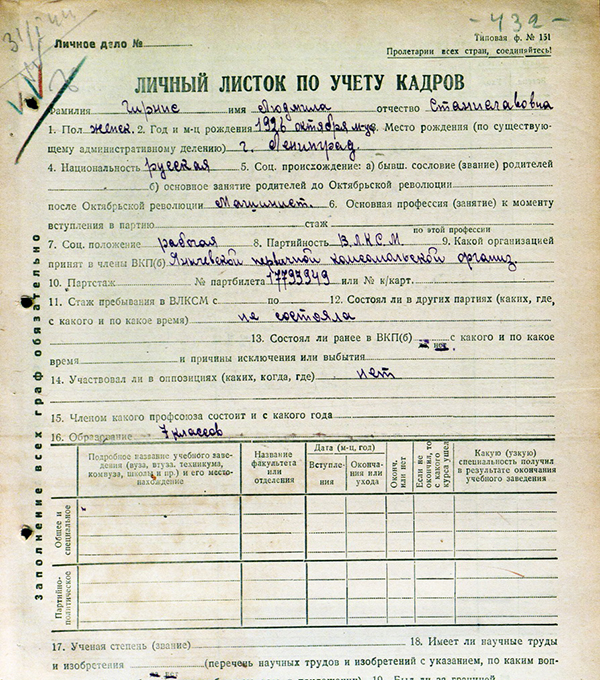 - 432 -
Личное дело №
Типовая ф. № 151
Пролетарии всех стран, соединяйтесь!
ЛИЧНЫЙ ЛИСТОК ПО УЧЕТУ КАДРОВ
Фамилия Гирнис имя Людмила отчество Станиславовна
1. Пол женск. 2. Год и м-ц рождения 1926 октября м-це. Место рождения (по существую-
щему административному делению) г. Ленинград
4. Национальность русская 5. Соц. происхождение: а) бывш. сословие (звание) родителей
б) основное занятие родителей до Октябрьской революции
после Октябрьской революции Машинист. 6. Основная профессия (занятие) к моменту
вступления в партию стаж
по этой профессии
7. Соц. положение рабочая 8. Партийность ВЛКСМ 9. Какой организацией
принят в члены ВКП(б) первичной комсомольской организ.
10. Партстаж № партбилета 17793949 или № к/карт.
11. Стаж пребывания в ВЛКСМ с по 12. Состоял ли в других партиях (каких, где,
с какого и по какое время) не состояла
13. Состоял ли ранее в ВКП(б) нет с какого и по какое
время и причины исключения или выбытия
14. Участвовал ли в оппозициях (каких, когда, где) нет
15. Членом какого профсоюза состоит и с какого года
16. Образование 7 классов
Подробное название учебного заведения (вуза, втуза, техникума, комвуза, школы и пр) и его местонахождение
Название факультета или отделения
Дата (м-ц, год)
Вступления
Окончания или ухода
Оконч. или нет
Если не окончил, то с какого курса ушел
Какую (узкую) специальность получил в результате окончания учебного заведения
Общее и специальное
Партийно-политическое
Заполнение всех граф обязательно
17. Ученая степень (звание) 18. Имеет ли научные труды
и изобретения нет (перечень научных трудов и изобретений с указанием, по каким воп-